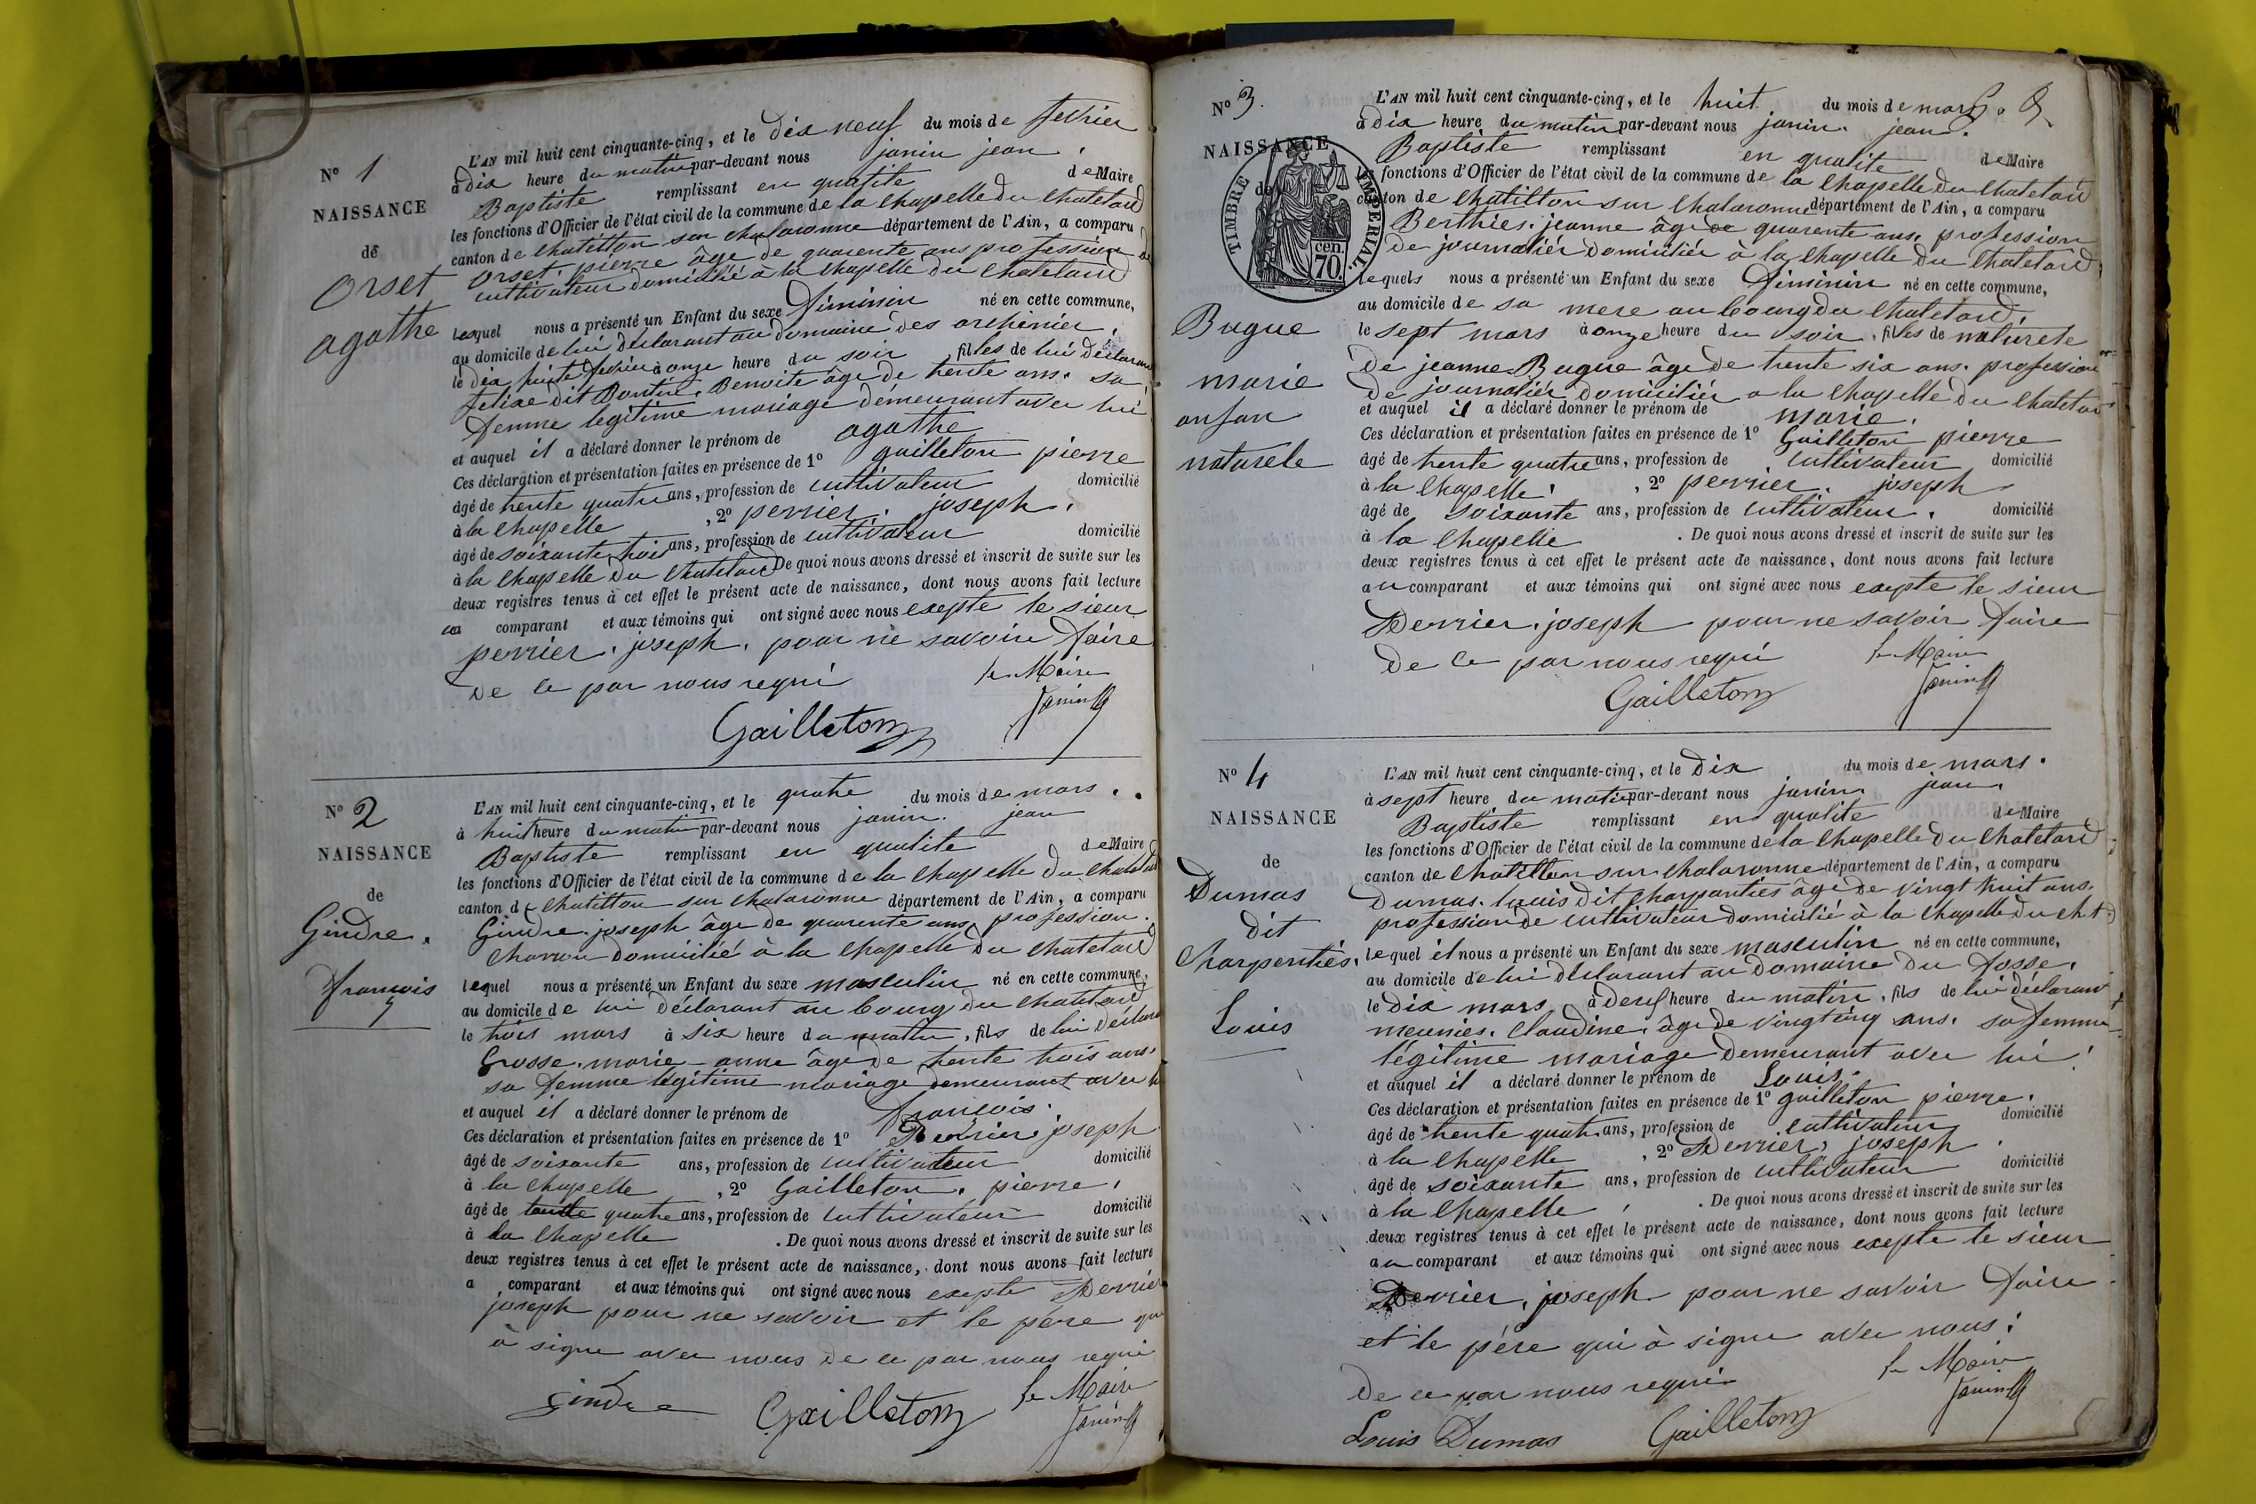 N° 1
NAISSANCE
de
Orset
agathe
L'AN mil huit cent cinquante-cinq, et le dix neuf du mois de fevrier
à dix heure du matin par-devant nous janin jean
Baptiste remplissant en qualite de Maire
les fonctions d'Officier de l'état civil de la commune de la Chapelle du Chatelard
canton de chatillon sur chalaronne département de l'Ain, a comparu
orset. pierre âge de quarente ans profession de
cultivateur domicilié à la Chapelle du Chatelard
lequel nous a présenté un Enfant du sexe féminin né en cette commune,
au domicile de lui déclarant au domaine des
le dix huite fevrier à onze heure du soir filles de lui déclarant
Benoite âge de trente ans. sa
femme legitime mariage demeurant avec lui
et auquel il a déclaré donner le prénom de agathe
Ces déclaration et présentation faites en présence de 1° gailleton pierre
âgé de trente quatre ans, profession de cultivateur domicilié
à la Chapelle , 2° perrier. joseph.
âgé de soixante trois ans, profession de cultivateur domicilié
à la Chapelle du Chatelard De quoi nous avons dressé et inscrit de suite sur les
deux registres tenus à cet effet le présent acte de naissance, dont nous avons fait lecture
au comparant et aux témoins qui ont signé avec nous exepte le sieur
perrier. joseph. pour ne savoir faire
de ce par nous requi
le Maire
Janin
Gailleton
N° 2
NAISSANCE
de
Gindre.
francois
L'AN mil huit cent cinquante-cinq, et le quatre du mois de mars.
à huit heure du matin par-devant nous janin. jean
Baptiste remplissant en qualite de Maire
les fonctions d'Officier de l'état civil de la commune de la Chapelle du Chatelard
canton de Chatillon sur Chalaronne département de l'Ain, a comparu
Gindre. joseph âge de quarente ans profession.
charron domicilié à la Chapelle du Chatelard
lequel nous a présenté un Enfant du sexe masculin né en cette commune,
au domicile de lui déclarant au bourg du Chatelard
le trois mars à six heure du matin, fils de lui déclarant
Grosse. marie anne âge de trente trois ans.
sa femme légitime mariage demeurant avec lui
et auquel il a déclaré donner le prénom de françois.
Ces déclaration et présentation faites en présence de 1° Perrier. joseph
âgé de soixante ans, profession de cultivateur domicilié
à la Chapelle , 2° Gailleton. pierre.
âgé de trente quatre ans, profession de cultivateur domicilié
à la Chapelle . De quoi nous avons dressé et inscrit de suite sur les
deux registres tenus à cet effet le présent acte de naissance, dont nous avons fait lecture
a comparant et aux témoins qui ont signé avec nous exepte Perrier
joseph pour ne savoir et le pére qui
à signe avec nous de ce par nous requi
Gindre Gailleton
le Maire
Janin
N° 3.
NAISSANCE
de
TIMBRE IMPERIAL.
cen.
70.
Bugue
marie
anfan
naturele
L'AN mil huit cent cinquante-cinq, et le huit du mois de mars.
à dix heure du matin par-devant nous janin. jean.
Baptiste remplissant en qualite de Maire
les fonctions d'Officier de l'état civil de la commune de la Chapelle du Chatelard
canton de Chatillon sur Chalaronne département de l'Ain, a comparu
Berthies. jeanne âge de quarente ans. profession
de journaliér domiciliér à la Chapelle du Chatelard
lequels nous a présenté un Enfant du sexe féminin né en cette commune,
au domicile de sa mere au bourg du Chatelard.
le sept mars à onze heure du soir, filles de naturele
de jeanne Bugue âge de trente six ans. profession
de journaliér domiciliér a la Chapelle du Chatelar
et auquel il a déclaré donner le prénom de marie.
Ces déclaration et présentation faites en présence de 1° Gailleton pierre
âgé de trente quatre ans, profession de cultivateur domicilié
à la Chapelle. , 2° perrier. joseph
âgé de soixante ans, profession de cultivateur. domicilié
à la Chapelle . De quoi nous avons dressé et inscrit de suite sur les
deux registres tenus à cet effet le présent acte de naissance, dont nous avons fait lecture
au comparant et aux témoins qui ont signé avec nous exepte le sieur
Perrier. joseph pour ne savoir faire
de ce par nous requi
le Maire
Janin
Gailleton
N° 4
NAISSANCE
de
Dumas
dit
Charpentiés.
Louis
L'AN mil huit cent cinquante-cinq, et le dix du mois de mars.
à sept heure du matin par-devant nous janin. jean.
Baptiste remplissant en qualite de Maire
les fonctions d'Officier de l'état civil de la commune de la Chapelle du Chatelard
canton de Chatillon sur chalaronne département de l'Ain, a comparu
Dumas. louis dit Charpantiés âge de vingt huit ans.
profession de cultivateur domicilié à la Chapelle du cht.
lequel il nous a présenté un Enfant du sexe masculin né en cette commune,
au domicile de lui déclarant au domaine du fosse.
le dix mars à deux heure du matin, fils de lui déclarant
meunies. Claudine. âge de vingt cinq ans. sa femme
légitime mariage demeurant avec lui.
et auquel il a déclaré donner le prénom de Louis.
Ces déclaration et présentation faites en présence de 1° gailleton pierre.
âgé de trente quatre ans, profession de cultivateur domicilié
à la Chapelle , 2° Perrier, joseph
âgé de soixante ans, profession de cultivateur domicilié
à la Chapelle . De quoi nous avons dressé et inscrit de suite sur les
deux registres tenus à cet effet le présent acte de naissance, dont nous avons fait lecture
au comparant et aux témoins qui ont signé avec nous exepte le sieur
Perrier, joseph pour ne savoir faire
et le pére qui à signe avec nous.
de ce par nous requi
le Maire
Janin
Louis Dumas Gailleton